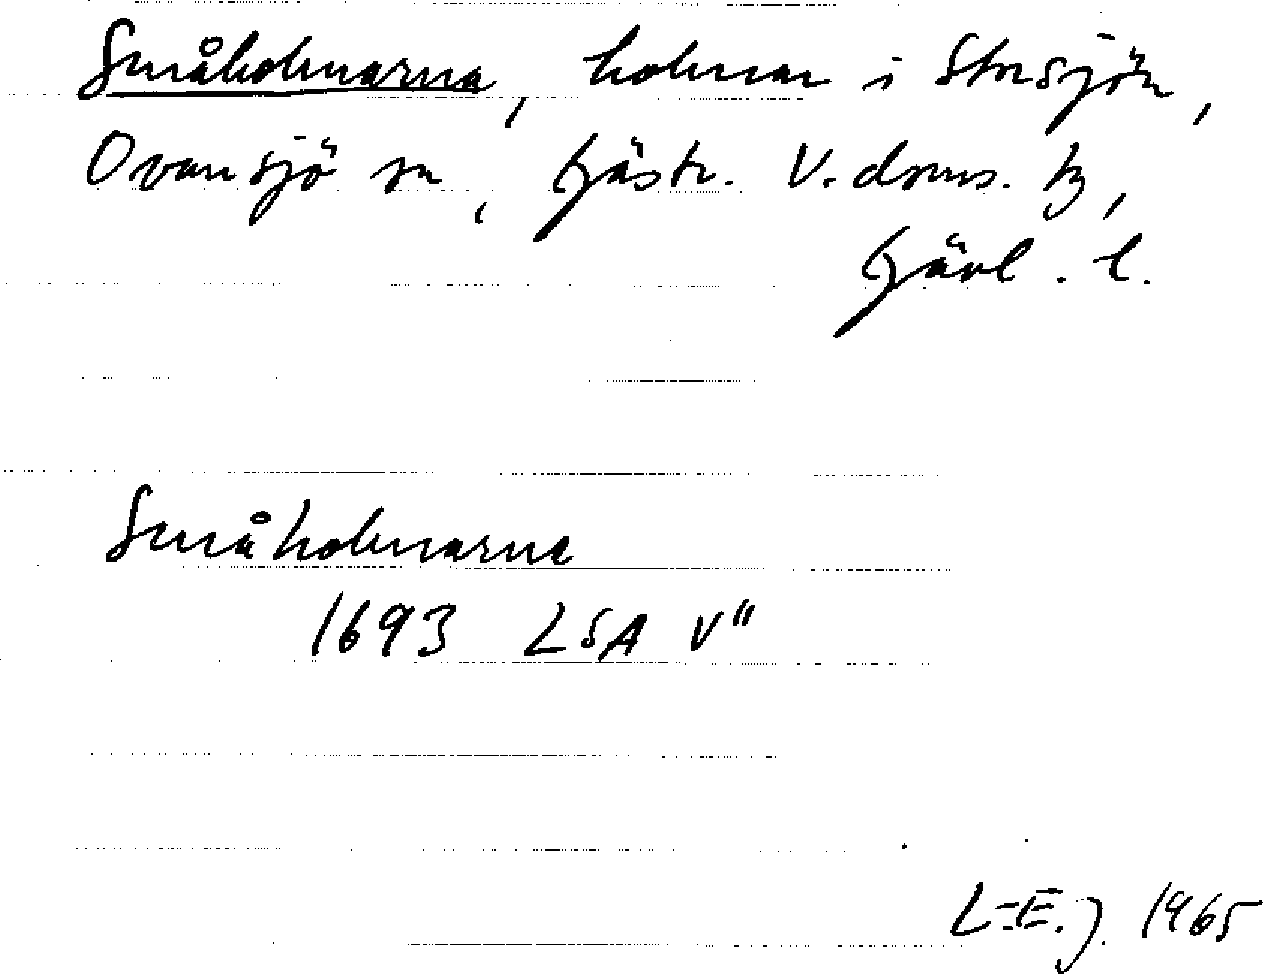 Småholmarna, holmar i Storsjön,
Ovansjö sn, Gästr. V. doms. tg,
Gävl. l.
Småholmarna
1693 LSA V"
L-E. J. 1965